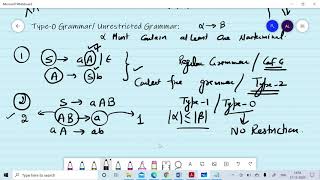 Microsoft Whiteboard
Type-0 Grammar/ Unrestricted Grammar: α → β
α Must Contain atleast one Nonterminal.
① S → aA | ∈ Regular Grammar / CFG
A → Sb Context free grammar / Type-2
② S → aAB Type-1 / Type-0
2 AB → a 1 |α| ≤ |β|
aA → ab No Restriction.